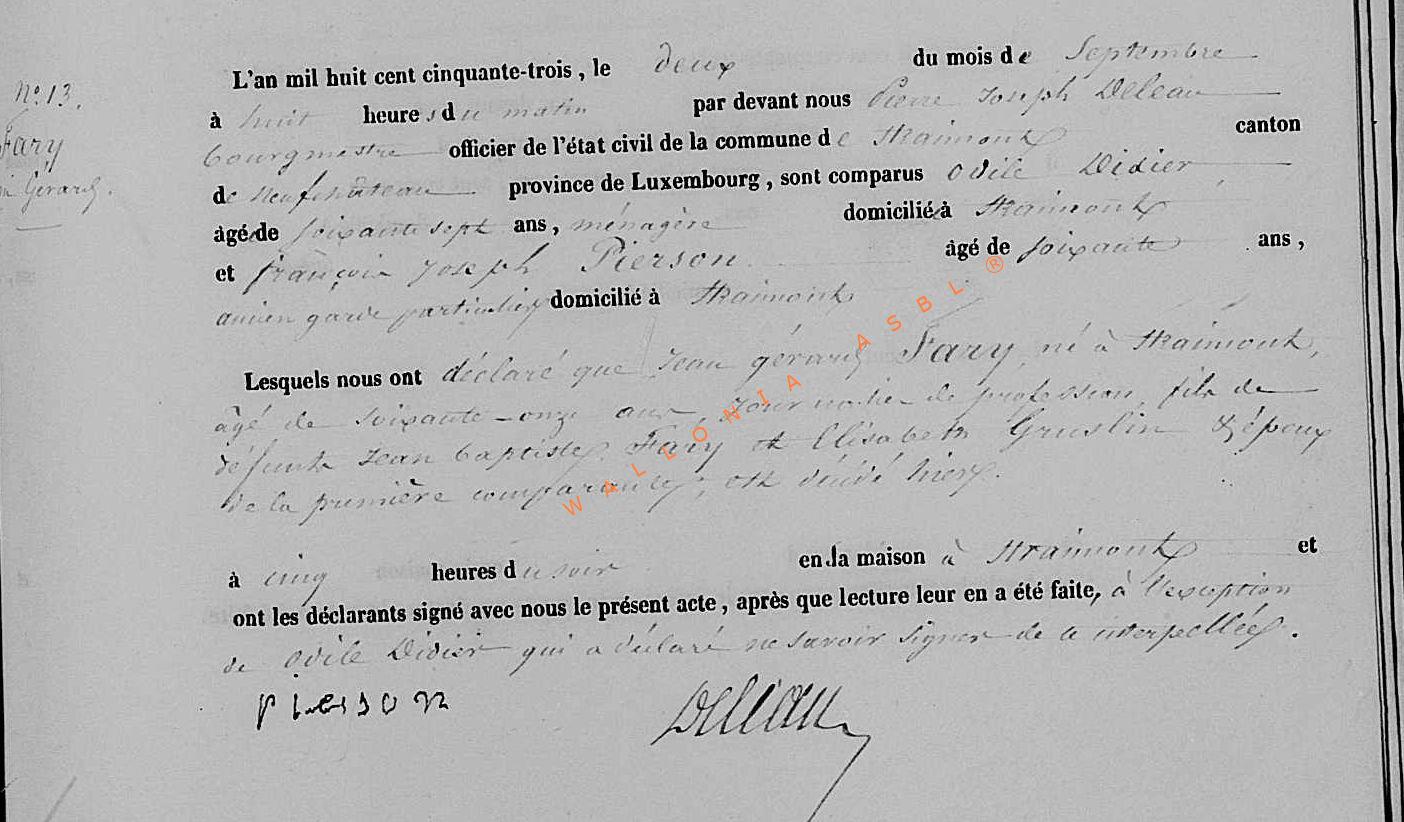 N° 13.
Fary
Gérard.
L'an mil huit cent cinquante-trois, le deux du mois de Septembre
à huit heures du matin par devant nous Pierre Joseph Deleau
bourgmestre officier de l'état civil de la commune de Straimont canton
de Neufchâteau province de Luxembourg, sont comparus Odile Didier
âgé de soixante sept ans, ménagère domicilié à Straimont
et françois Joseph Pierson âgé de soixante ans,
ancien garde particulier domicilié à Straimont
Lesquels nous ont déclaré que Jean gérard Fary, né à Straimont,
âgé de soixante-onze ans, journalier de profession, fils de
défunts Jean baptiste Fary et Elisabeth Gruslin & époux
de la première comparante, est décédé hier.
à cinq heures du soir en la maison à Straimont et
ont les déclarants signé avec nous le présent acte, après que lecture leur en a été faite, à l'exception
de Odile Didier qui a déclaré ne savoir signer de ce interpellée.
Pierson Deleau
WALLONIA ASBL ®